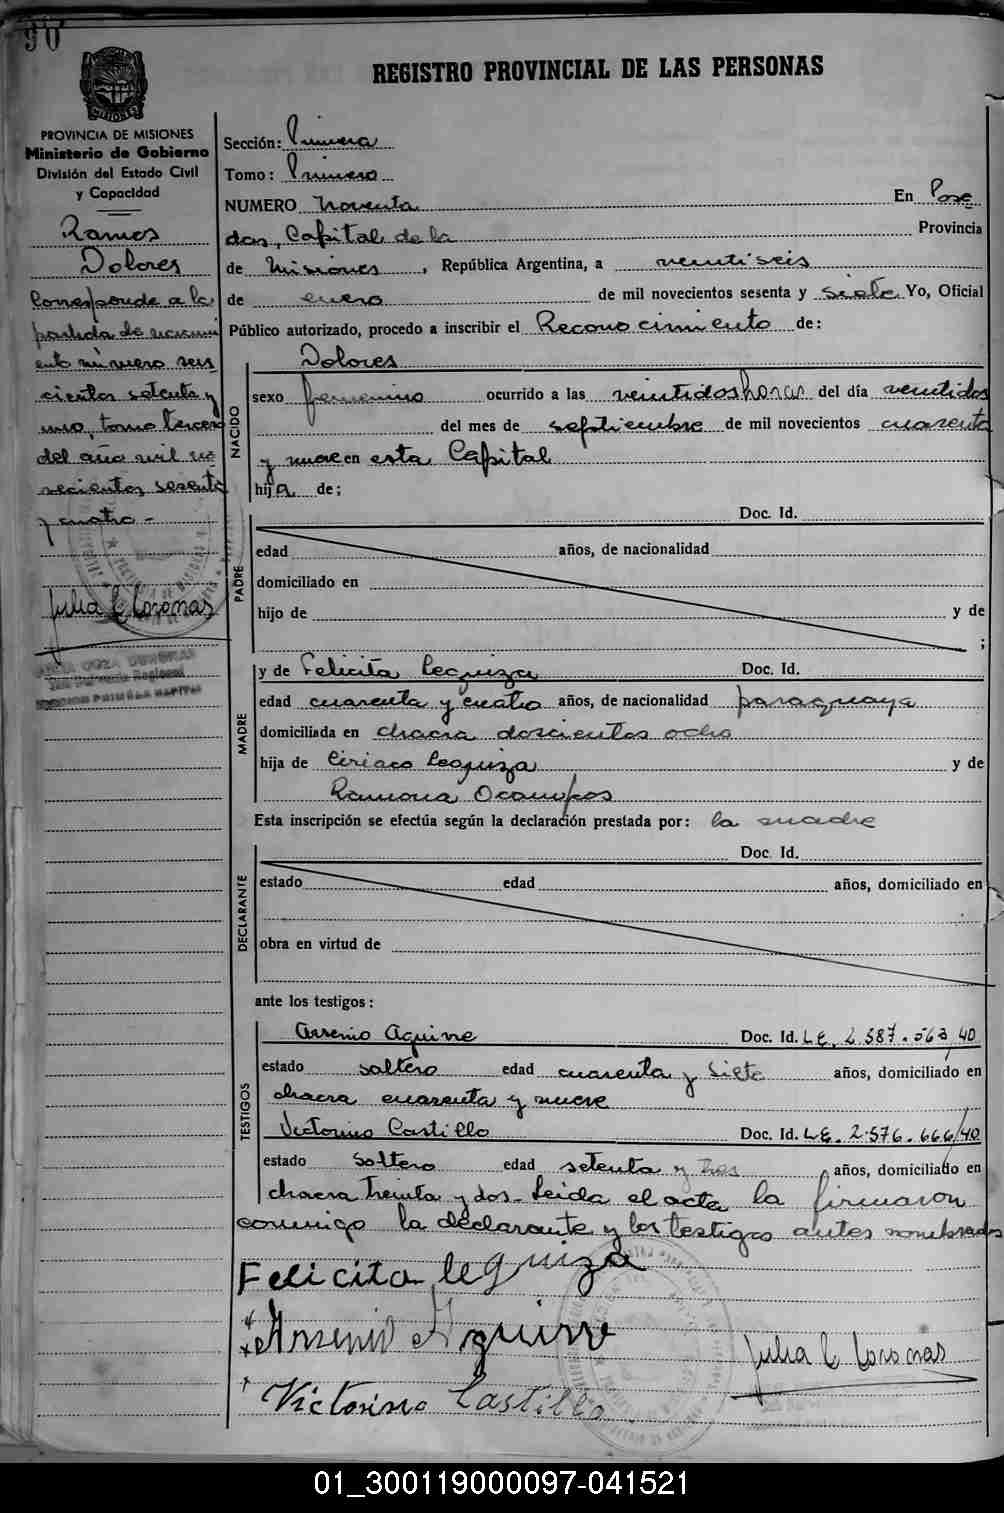 90
REGISTRO PROVINCIAL DE LAS PERSONAS
PROVINCIA DE MISIONES
Ministerio de Gobierno
División del Estado Civil
y Capacidad
Ramos
Dolores
Corresponde a la
partida de nacimi
ento número seis
cientos setenta y
uno, tomo tercero
del año mil no
vecientos sesenta
y cuatro -
Julia C Coronas
Sección: Primera
Tomo: Primero
NUMERO noventa En Posa
das, Capital de la Provincia
de Misiones, República Argentina, a veintiseis
de enero de mil novecientos sesenta y siete Yo, Oficial
Público autorizado, procedo a inscribir el Reconocimiento de:
Dolores
NACIDO
sexo femenino ocurrido a las veintidos horas del día veintidos
del mes de septiembre de mil novecientos cuarenta
y nueve en esta Capital
hija de;
PADRE
Doc. Id.
edad años, de nacionalidad
domiciliado en
hijo de y de
;
MADRE
y de Felicita Leguiza Doc. Id.
edad cuarenta y cuatro años, de nacionalidad paraguaya
domiciliada en chacra doscientos ocho
hija de Ciriaco Leguiza y de
Ramona Ocampos
Esta inscripción se efectúa según la declaración prestada por: la madre
DECLARANTE
Doc. Id.
estado edad años, domiciliado en
obra en virtud de
ante los testigos:
TESTIGOS
Arsenio Aguirre Doc. Id. L.E. 2.587.563/40
estado soltero edad cuarenta y siete años, domiciliado en
chacra cuarenta y nueve
Victorino Castillo Doc. Id. L.E. 2.576.666/40
estado soltero edad setenta y tres años, domiciliado en
chacra treinta y dos - Leida el acta la firmaron
conmigo la declarante y los testigos antes nombrados
Felicita leguiza
Arsenio Aguirre
Julia C Coronas
Victorino Castillo
01_300119000097-041521